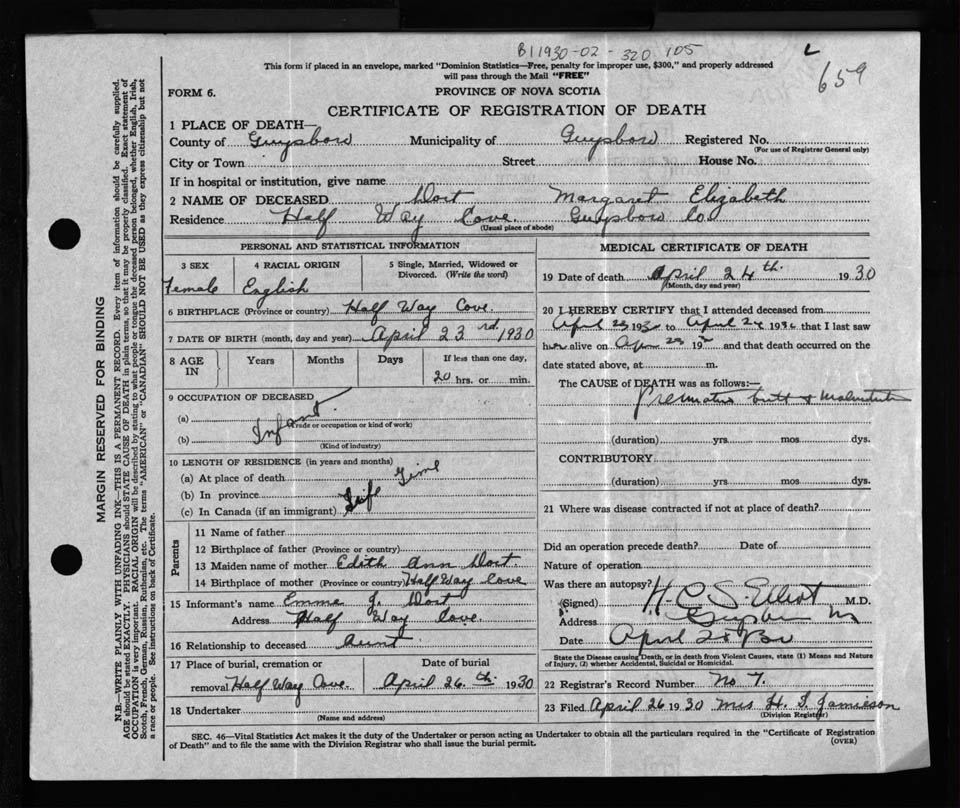 B11930-02-320 105
L
659
This form if placed in an envelope, marked "Dominion Statistics—Free, penalty for improper use, $300," and properly addressed
will pass through the Mail "FREE"
FORM 6.
PROVINCE OF NOVA SCOTIA
CERTIFICATE OF REGISTRATION OF DEATH
1 PLACE OF DEATH—
County of Guysboro Municipality of Guysboro Registered No.
(For use of Registrar General only)
City or Town Street House No.
If in hospital or institution, give name
2 NAME OF DECEASED Dort Margaret Elizabeth
Residence Half Way Cove. Guysboro Co.
(Usual place of abode)
PERSONAL AND STATISTICAL INFORMATION
3 SEX 4 RACIAL ORIGIN 5 Single, Married, Widowed or
Divorced. (Write the word)
Female English
6 BIRTHPLACE (Province or country) Half Way Cove.
7 DATE OF BIRTH (month, day and year) April 23rd 1930
8 AGE IN Years Months Days If less than one day,
20 hrs. or min.
9 OCCUPATION OF DECEASED
(a)
(Trade or occupation or kind of work)
(b) Infant
(Kind of industry)
10 LENGTH OF RESIDENCE (in years and months)
(a) At place of death
(b) In province
(c) In Canada (if an immigrant) Life Time
Parents
11 Name of father
12 Birthplace of father (Province or country)
13 Maiden name of mother Edith Ann Dort.
14 Birthplace of mother (Province or country) Half Way Cove
15 Informant's name Emma J. Dort
Address Half Way Cove.
16 Relationship to deceased Aunt
17 Place of burial, cremation or Date of burial
removal Half Way Cove. April 26th 1930
18 Undertaker
(Name and address)
MEDICAL CERTIFICATE OF DEATH
19 Date of death April 24th. 1930
(Month, day and year)
20 I HEREBY CERTIFY that I attended deceased from
April 23 1930 to April 24 1930 that I last saw
her alive on 23 19 and that death occurred on the
date stated above, at m.
The CAUSE of DEATH was as follows:—
Premature birth &
(duration) yrs mos dys.
CONTRIBUTORY
(duration) yrs mos dys.
21 Where was disease contracted if not at place of death?
Did an operation precede death? Date of
Nature of operation
Was there an autopsy?
(Signed) H.C.S. Elliot M.D.
Address
Date April
State the Disease causing Death, or in death from Violent Causes, state (1) Means and Nature
of Injury, (2) whether Accidental, Suicidal or Homicidal.
22 Registrar's Record Number No 7.
23 Filed April 26 1930 Mrs H. S. Jamieson
(Division Registrar)
SEC. 46—Vital Statistics Act makes it the duty of the Undertaker or person acting as Undertaker to obtain all the particulars required in the "Certificate of Registration
of Death" and to file the same with the Division Registrar who shall issue the burial permit.
(OVER)
MARGIN RESERVED FOR BINDING
N.B.—WRITE PLAINLY WITH UNFADING INK—THIS IS A PERMANENT RECORD. Every item of information should be carefully supplied.
AGE should be stated EXACTLY. PHYSICIANS should STATE CAUSE OF DEATH in plain terms, so that it may be properly classified. Exact statement of
OCCUPATION is very important. RACIAL ORIGIN will be described by stating to what people or tongue the deceased person belonged, whether English, Irish,
Scotch, French, German, Russian, Ruthenian, etc. The terms "AMERICAN" or "CANADIAN" SHOULD NOT BE USED as they express citizenship but not
a race or people. See instructions on back of Certificate.